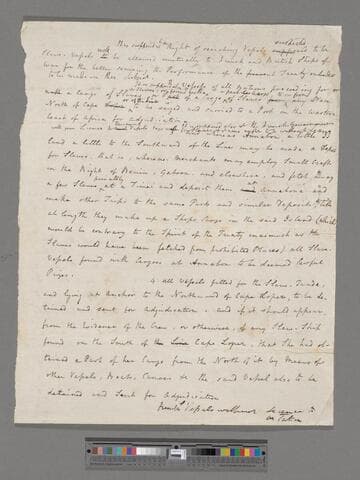 suspects
this supposed Right of searching Vessels to be
Slave Vessels to be allowed mutually to French and British Ships of
War for the better securing the Performance of the present Treaty
to be made on this Subject.
of all Nations proceeding for or
a Cargo of Slaves
North of Cape to be seized and carried to a Port on the western
Coast of Africa for adjudication.
lend a little to the Southward of the Line may be made a Depot
for Slaves. that is, whereas Merchants may employ Small Craft
in the Bight of Benin, Gaboon, and elsewhere, and fetch away
a few Slaves at a Time and deposit them at Annabona and
make other Trips to the same Ports and similar Deposits, till
at length they make up a Ships Cargo in the said Island (which
would be contrary to the Spirit of the Treaty inasmuch as the
Slaves would have been fetched from prohibited Places) all Slave
Vessels found with Cargoes at Annabon to be deemed lawful
Prizes.
4. all Vessels fitted for the Slave Trade,
and lying at anchor to the Northward of Cape Lopez, to be de-
tained and sent for Adjudication. and if it should appear
from the Evidence of the Crew, or otherwise, of any Slave Ship
found on the South of Cape Lopez, that She had ob-
tained a Part of her Cargo from the North of it by Means of
other Vessels, Boats, Canoes &c the said Vessel also to be
detained and sent for Adjudication
French Vessels